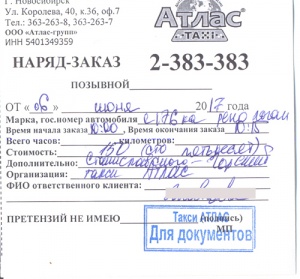 г. Новосибирск
Ул. Королева, 40, к.36, оф.7
Тел.: 363-263-8, 363-263-7
ООО «Атлас-групп»
ИНН 5401349359
Атлас
TAXI
НАРЯД-ЗАКАЗ 2-383-383
ПОЗЫВНОЙ
ОТ «06» июня 2017 года
Марка, гос.номер автомобиля с176ка рено логан
Время начала заказа 10:00 Время окончания заказа 10:15
Всего часов: километров:
Стоимость: 150 (сто пятьдесят) р
Дополнительно: Станиславского -
Организация: такси АТЛАС
ФИО ответственного клиента:
ПРЕТЕНЗИЙ НЕ ИМЕЮ
(подпись)
МП
Такси АТЛАС
Для документов